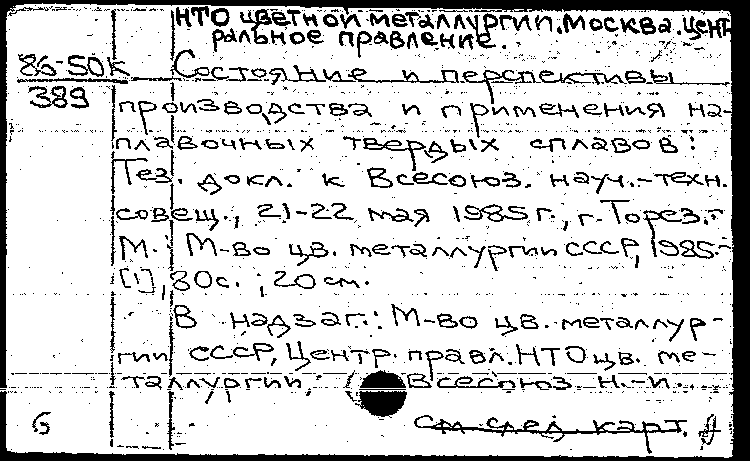 НТО цветной металлургии. Москва. Цент
ральное правление.
86-50к Состояние и перспективы
389 производства и применения на-
плавочных твердых сплавов:
Тез. докл. к Всесоюз. науч.-техн.
совещ., 21-22 мая 1985 г., г. Торез.-
М.: М-во цв. металлургии СССР, 1985.-
[1], 80 с.; 20 см.
В надзаг.: М-во цв. металлур-
гии СССР, Центр. правл. НТО цв. ме-
таллургии, Всесоюз. н.-и.
6 см след. карт.